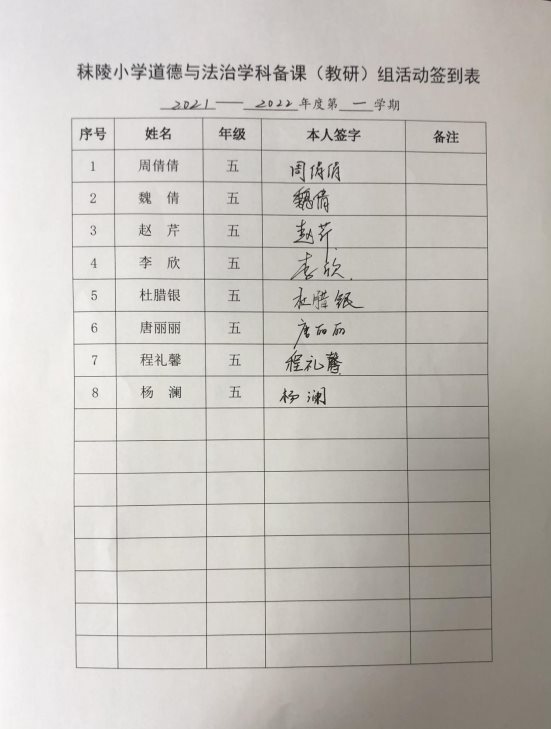 秣陵小学道德与法治学科备课（教研）组活动签到表
2021——2022年度第一学期
序号 姓名 年级 本人签字 备注
1 周倩倩 五 周倩倩
2 魏 倩 五 魏倩
3 赵 芹 五 赵芹
4 李 欣 五 李欣
5 杜腊银 五 杜腊银
6 唐丽丽 五 唐丽丽
7 程礼馨 五 程礼馨
8 杨 澜 五 杨澜